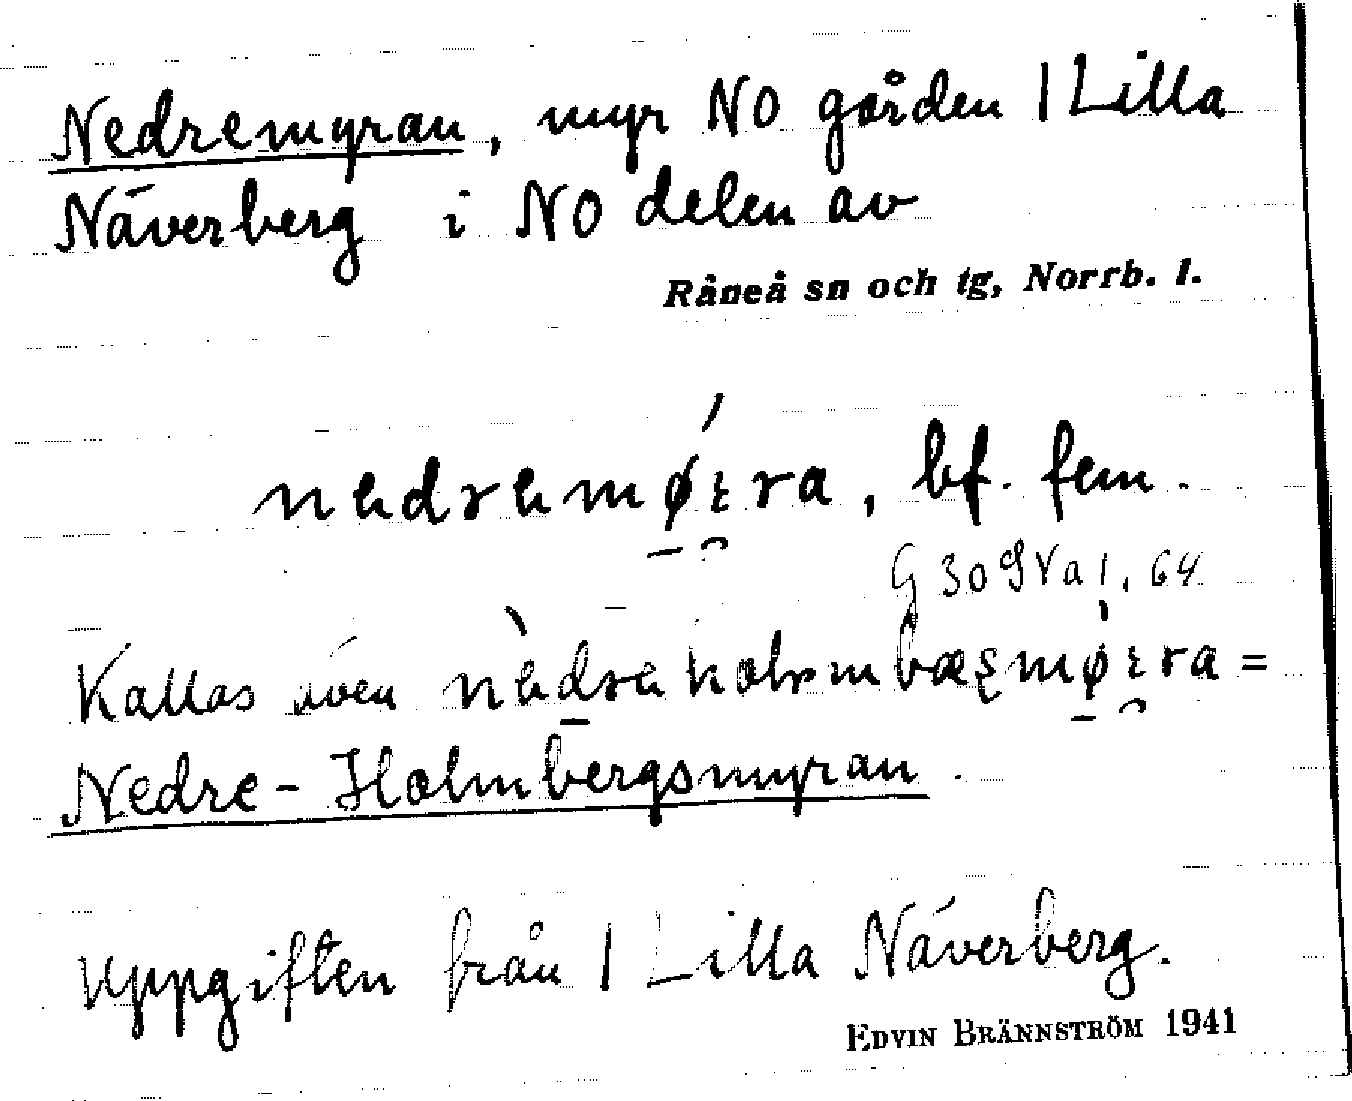 Nedremyran, myr NO gården 1 Lilla
Näverberg i NO delen av
Råneå sn och tg, Norrb. l.
bf. fem.
G 30 9 Va 1, 64
Kallas även
=
Nedre-Holmbergsmyran.
Uppgiften från 1 Lilla Näverberg.
EDVIN BRÄNNSTRÖM 1941